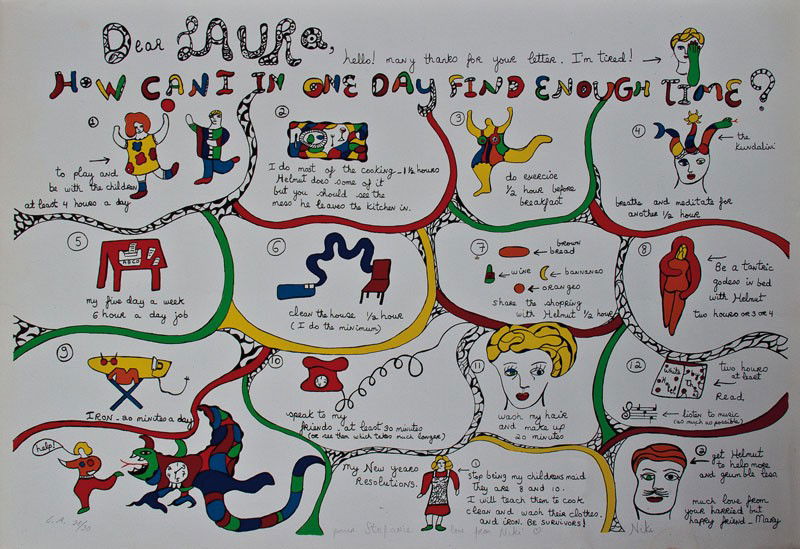 Dear LAURA,
hello! many thanks for your letter. I'm tired!
HOW CAN I IN ONE DAY FIND ENOUGH TIME?
1
to play and
be with the children
at least 4 hours a day
2
I do most of the cooking - 1 1/2 hours
Helmut does some of it
but you should see the
mess he leaves the kitchen in.
3
do exercise
1/2 hour before
breakfast
4
the
kundalini
breathe and meditate for
another 1/2 hour
5
ABCD
my five day a week
6 hour a day job
6
clean the house 1/2 hour
(I do the minimum)
7
brown
bread
wine
bannenas
oranges
share the shopping
with Helmut 1/2 hour
8
Be a tantric
goddess in bed
with Helmut
two hours or 3 or 4
9
IRON - 20 minutes a day
10
speak to my
friends - at least 30 minutes
(or see them which takes much longer)
11
wash my hair
and make up
20 minutes
12
two hours
at least
Read
listen to music
(as much as possible)
help!
my New Years
Resolutions.
1
Stop being my childrens maid
they are 8 and 10.
I will teach them to cook
clean and wash their clothes.
and iron. BE SURVIVORS!
2
get Helmut
to help more
and grumble less.
much love from
your harried but
happy friend - Mary
pour Stefanie love from Niki
Niki